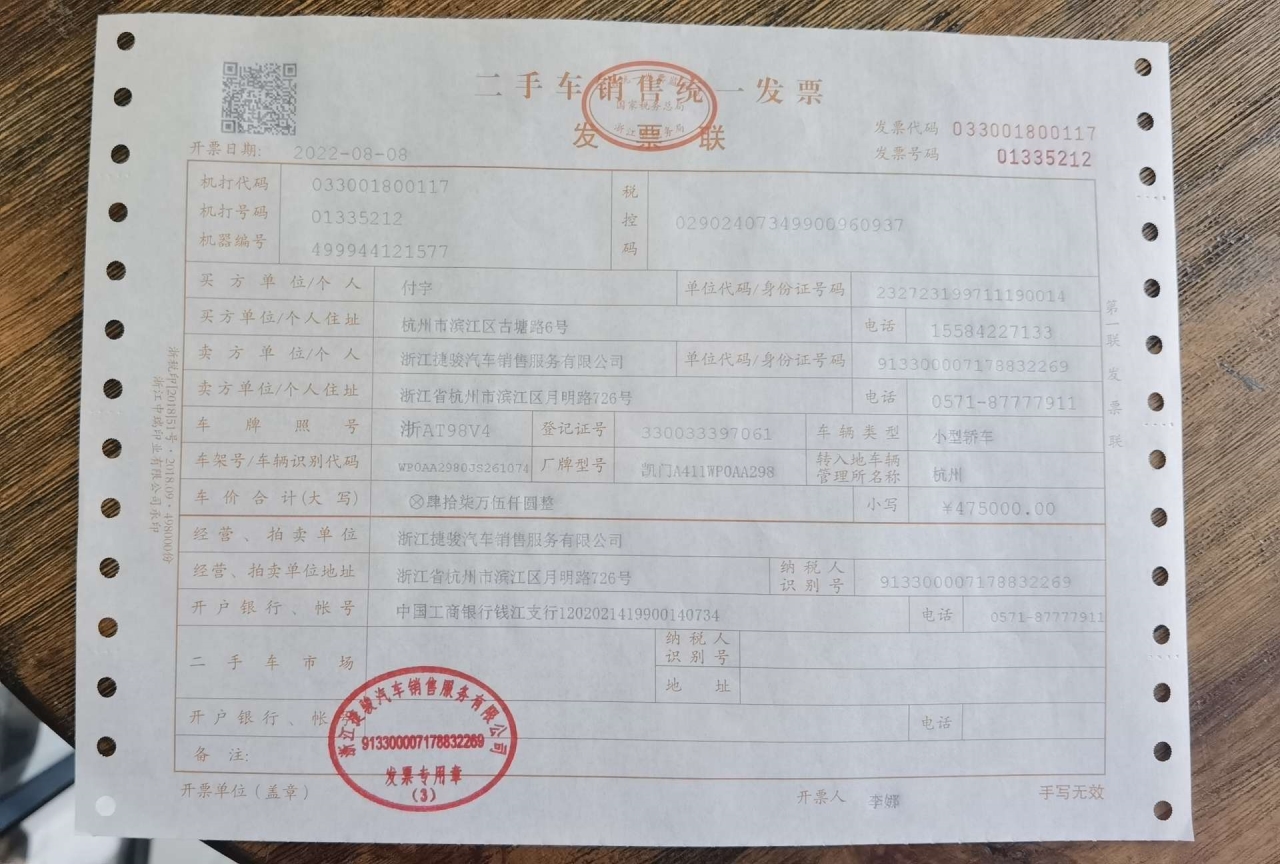 二手车销售统一发票
国家税务总局
发票联
发票代码 033001800117
发票号码 01335212
开票日期: 2022-08-08
机打代码 033001800117
机打号码 01335212
机器编号 499944121577
税控码 02902407349900960937
买方单位/个人 付宇 单位代码/身份证号码 232723199711190014
买方单位/个人住址 杭州市滨江区古塘路6号 电话 15584227133
卖方单位/个人 浙江捷骏汽车销售服务有限公司 单位代码/身份证号码 913300007178832269
卖方单位/个人住址 浙江省杭州市滨江区月明路726号 电话 0571-87777911
车牌照号 浙AT98V4 登记证号 330033397061 车辆类型 小型轿车
车架号/车辆识别代码 WP0AA2980JS261074 厂牌型号 凯门A411WP0AA298 转入地车辆管理所名称 杭州
车价合计(大写) ⊗肆拾柒万伍仟圆整 小写 ¥475000.00
经营、拍卖单位 浙江捷骏汽车销售服务有限公司
经营、拍卖单位地址 浙江省杭州市滨江区月明路726号 纳税人识别号 913300007178832269
开户银行、帐号 中国工商银行钱江支行1202021419900140734 电话 0571-87777911
二手车市场 纳税人识别号
地址
开户银行、帐 电话
备注:
浙江捷骏汽车销售服务有限公司
913300007178832269
发票专用章
(3)
开票单位(盖章) 开票人 李娜 手写无效
第一联 发票联
浙税印[2018]51号·2018.09·498000份
浙江中瑞印业有限公司承印